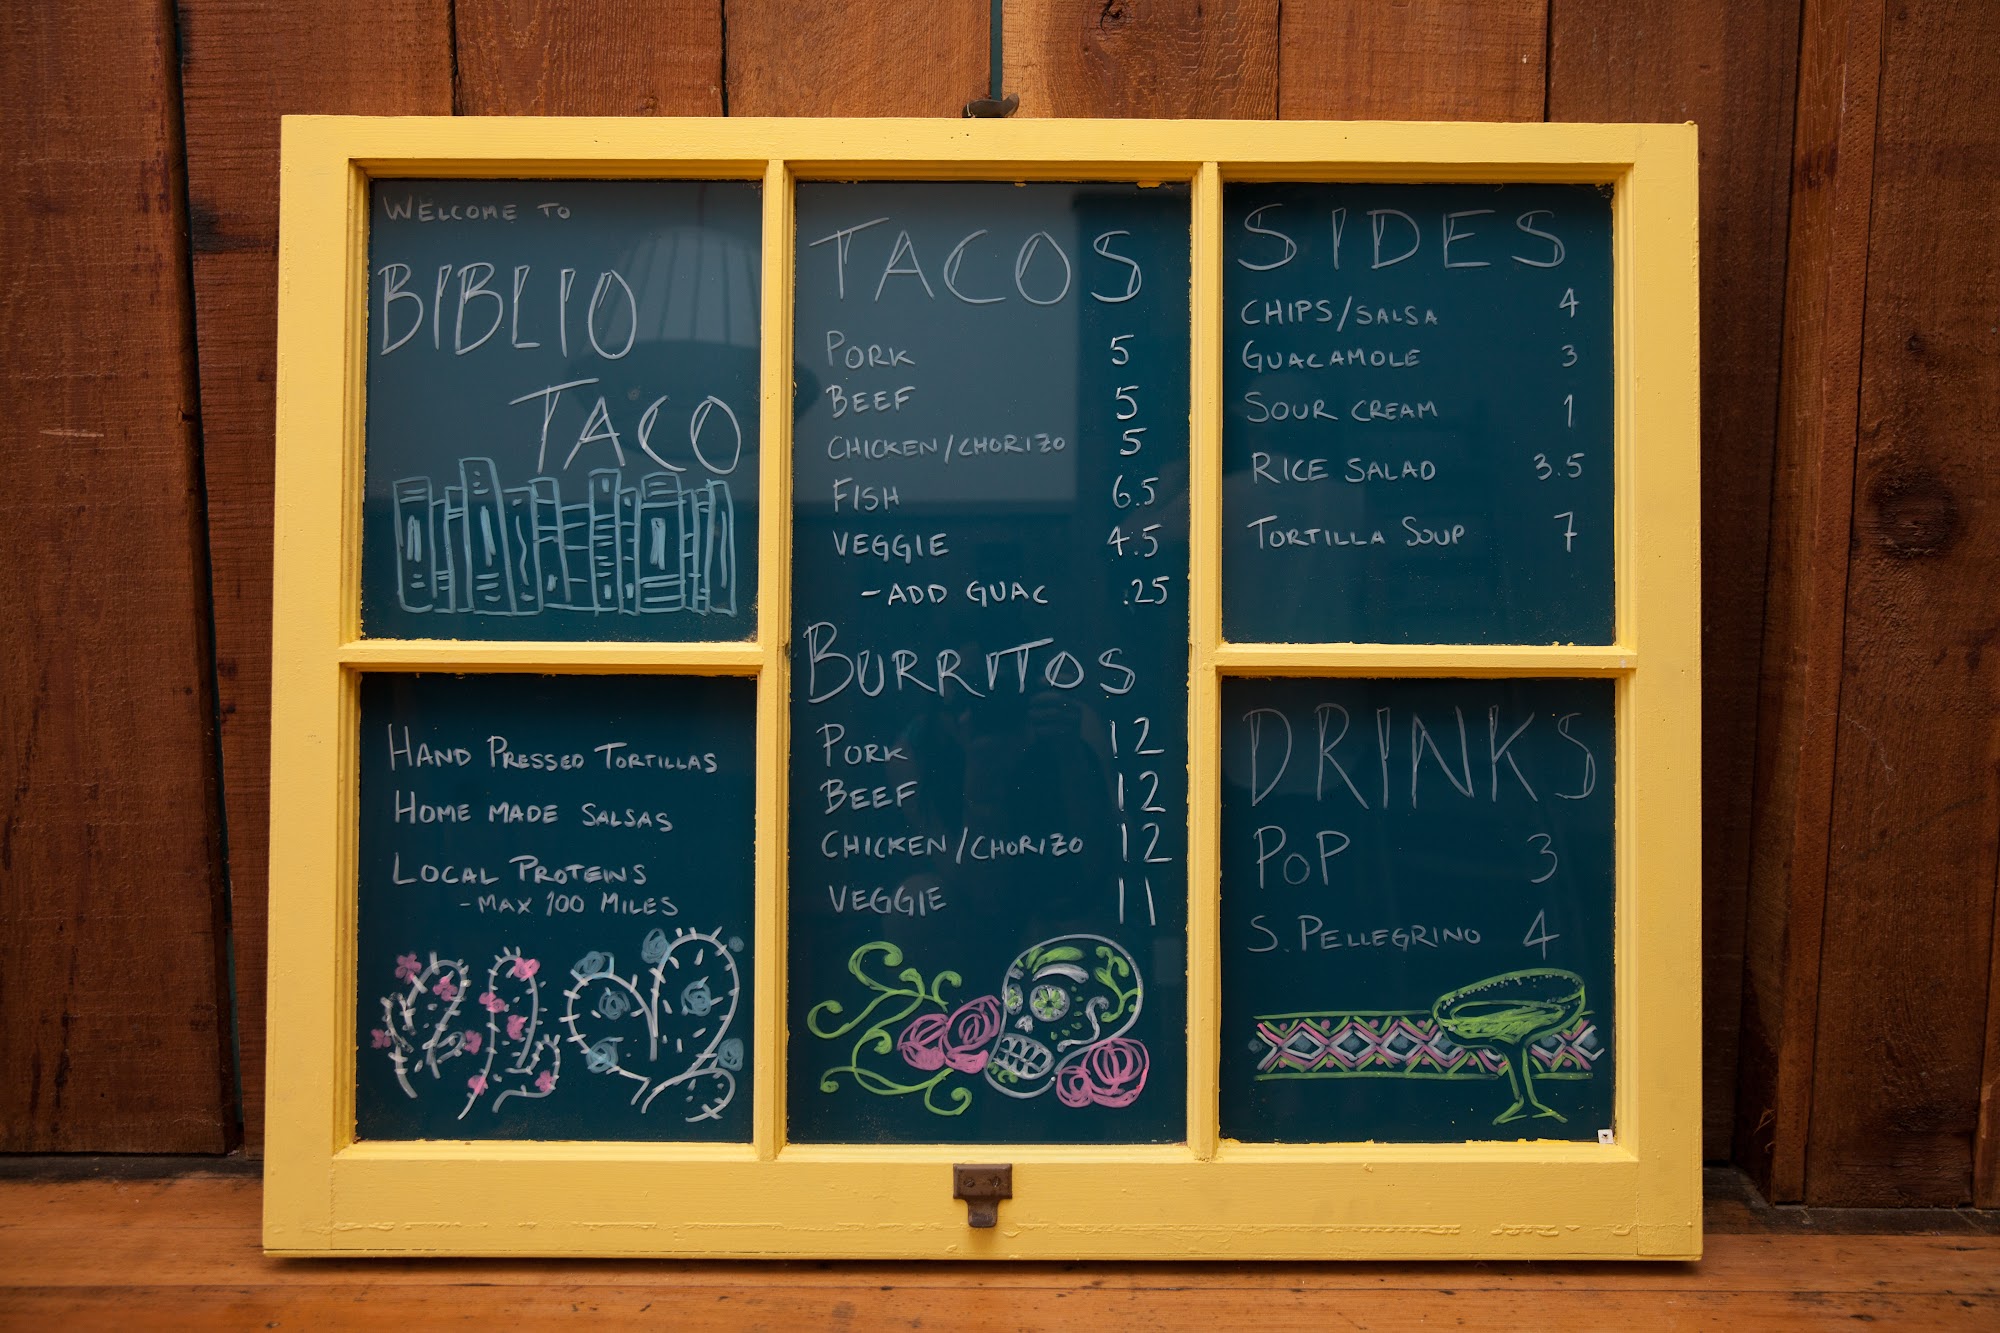 WELCOME TO
BIBLIO
TACO
HAND PRESSED TORTILLAS
HOME MADE SALSAS
LOCAL PROTEINS
-MAX 100 MILES
TACOS
PORK 5
BEEF 5
CHICKEN/CHORIZO 5
FISH 6.5
VEGGIE 4.5
-ADD GUAC .25
BURRITOS
PORK 12
BEEF 12
CHICKEN/CHORIZO 12
VEGGIE 11
SIDES
CHIPS/SALSA 4
GUACAMOLE 3
SOUR CREAM 1
RICE SALAD 3.5
TORTILLA SOUP 7
DRINKS
POP 3
S. PELLEGRINO 4